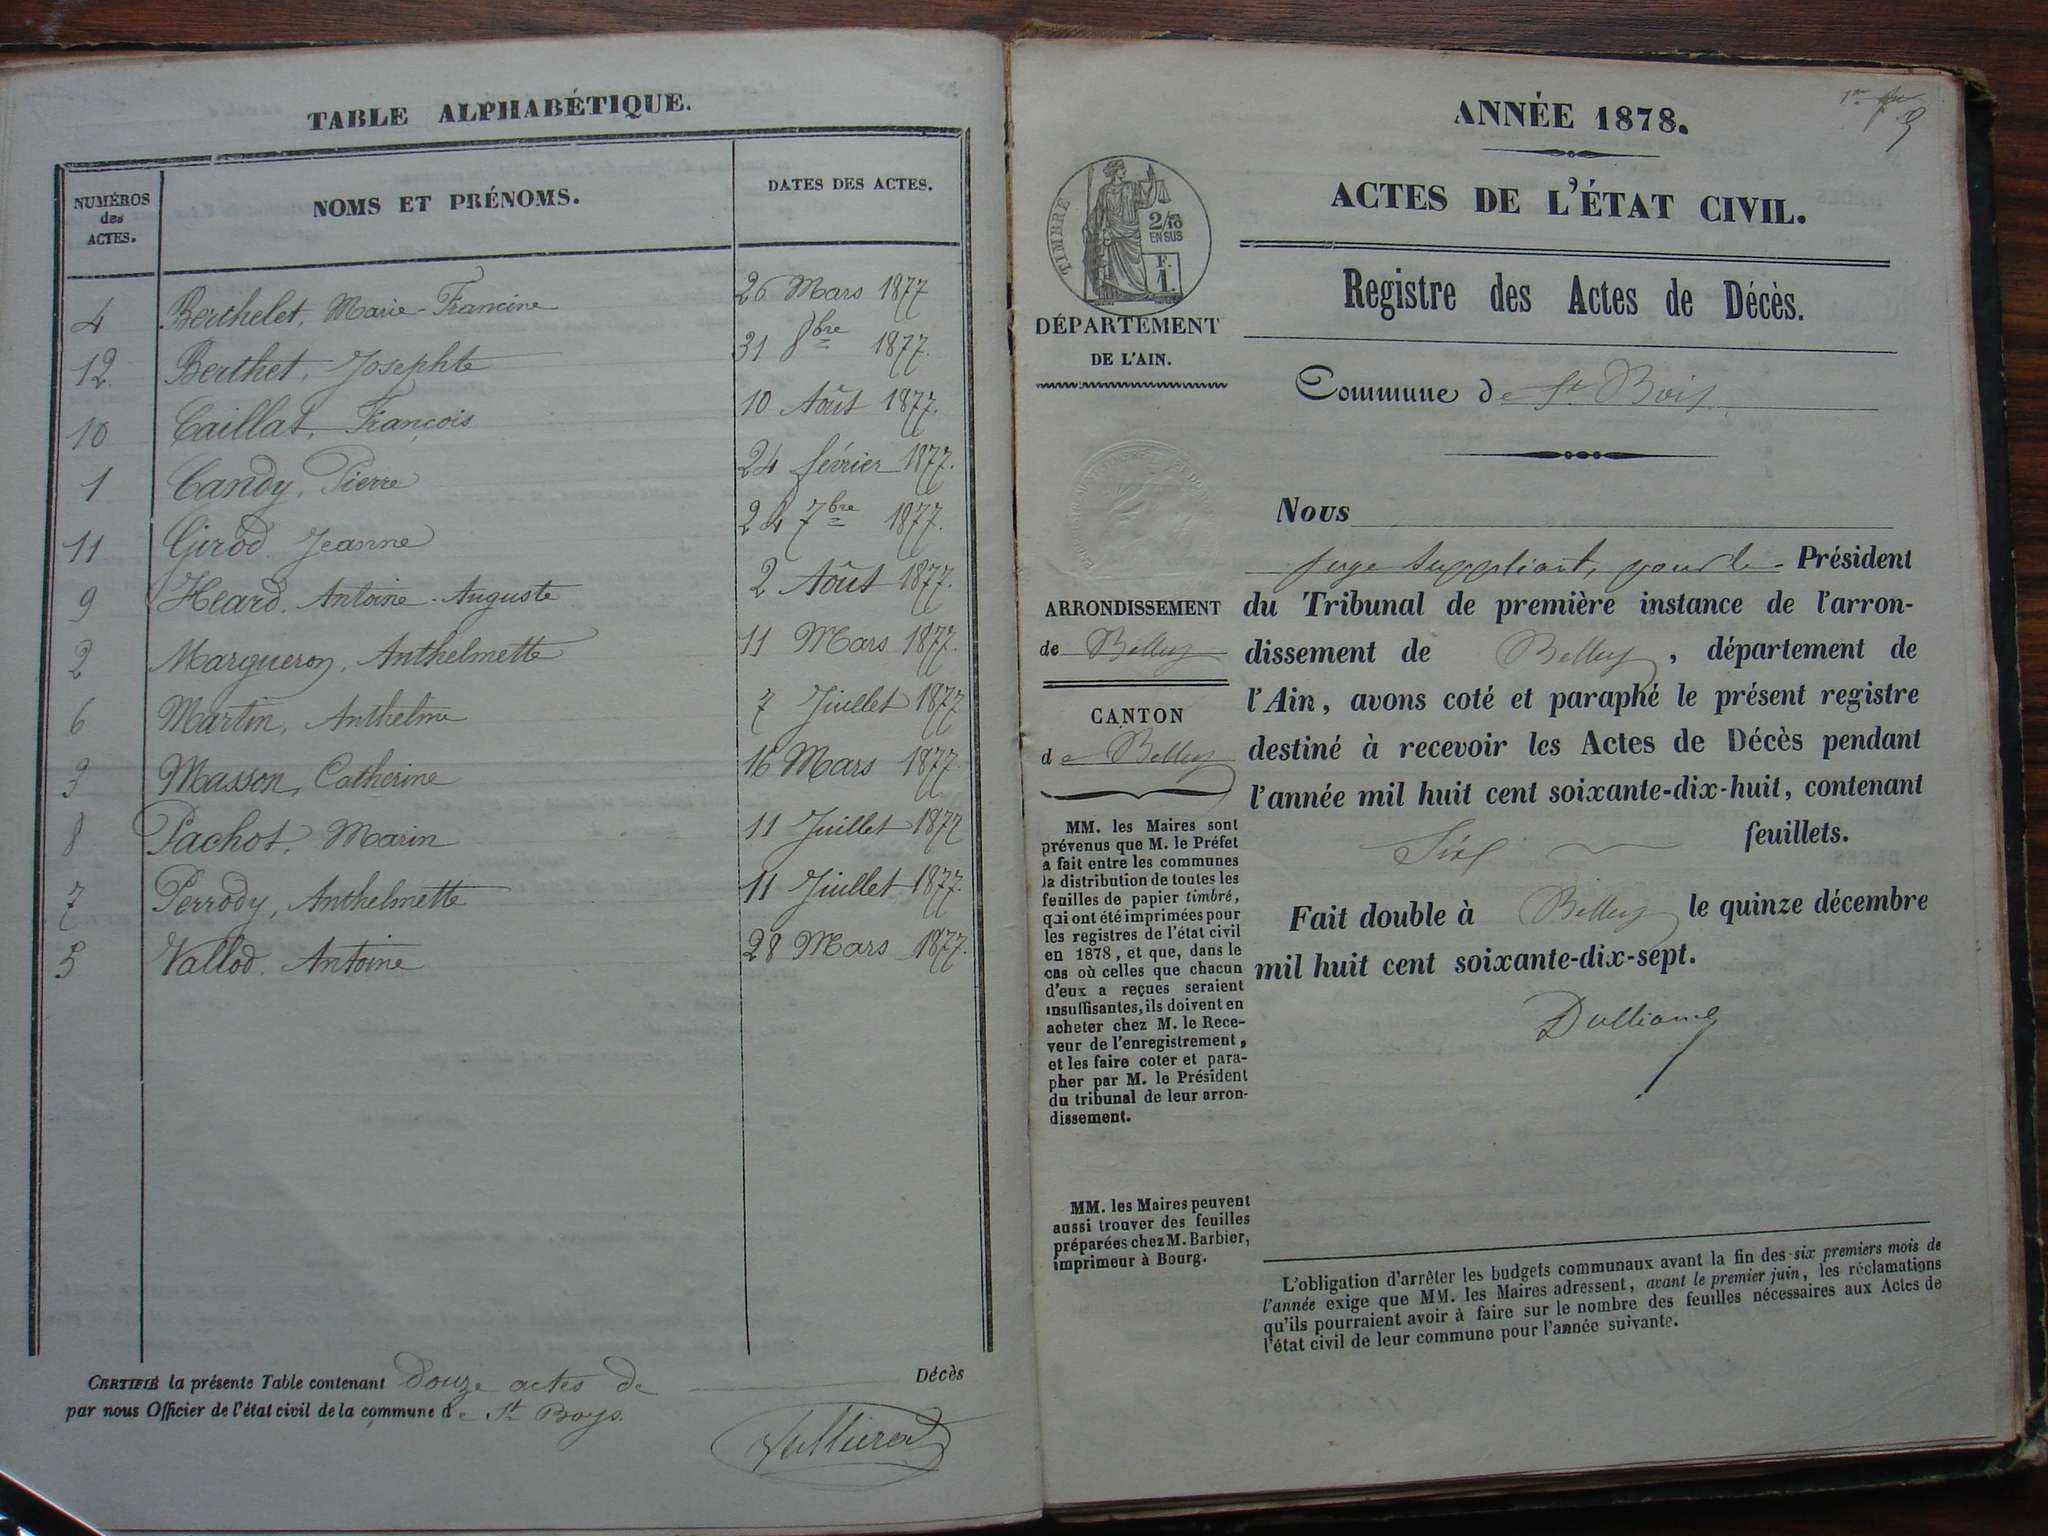 TABLE ALPHABÉTIQUE.
NUMÉROS
des
ACTES.
NOMS ET PRÉNOMS.
DATES DES ACTES.
4 Berthelet, Marie-Francine 26 Mars 1877
12. Berthet, Josephte 31 8bre 1877.
10 Caillat, François 10 Août 1877.
1 Candy, Pierre 24 février 1877.
11 Girod Jeanne 24 7bre 1877.
9 Heard, Antoine-Auguste 2 Août 1877.
2 Margueron, Anthelmette 11 Mars 1877.
6 Martin, Anthelme 7 Juillet 1877
3 Masson, Catherine 16 Mars 1877
8 Pachot, Marin 11 Juillet 1877
7 Perrody, Anthelmette 11 Juillet 1877.
5 Vallod, Antoine 28 Mars 1877.
CERTIFIÉ la présente Table contenant Douze actes de Décès
par nous Officier de l'état civil de la commune de St Boys.
ANNÉE 1878.
ACTES DE L'ÉTAT CIVIL.
Registre des Actes de Décès.
Commune de St Bois
TIMBRE
2/10
EN SUS
F.
1.
DÉPARTEMENT
DE L'AIN.
ARRONDISSEMENT
de Belley
CANTON
de Belley
MM. les Maires sont
prévenus que M. le Préfet
a fait entre les communes
la distribution de toutes les
feuilles de papier timbré,
qui ont été imprimées pour
les registres de l'état civil
en 1878, et que, dans le
cas où celles que chacun
d'eux a reçues seraient
insuffisantes, ils doivent en
acheter chez M. le Rece-
veur de l'enregistrement,
et les faire coter et para-
pher par M. le Président
du tribunal de leur arron-
dissement.
MM. les Maires peuvent
aussi trouver des feuilles
préparées chez M. Barbier,
imprimeur à Bourg.
Nous
juge suppléant, pour le Président
du Tribunal de première instance de l'arron-
dissement de Belley, département de
l'Ain, avons coté et paraphé le présent registre
destiné à recevoir les Actes de Décès pendant
l'année mil huit cent soixante-dix-huit, contenant
Six feuillets.
Fait double à Belley le quinze décembre
mil huit cent soixante-dix-sept.
L'obligation d'arrêter les budgets communaux avant la fin des six premiers mois de
l'année exige que MM. les Maires adressent, avant le premier juin, les réclamations
qu'ils pourraient avoir à faire sur le nombre des feuilles nécessaires aux Actes de
l'état civil de leur commune pour l'année suivante.